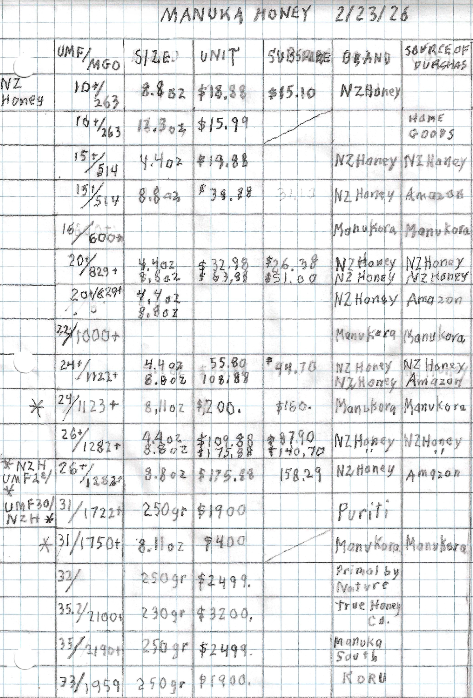 MANUKA HONEY 2/23/26
UMF/MGO SIZE UNIT SUBSCRIBE BRAND SOURCE OF PURCHAS
NZ Honey 10+/263 8.8oz $18.88 $15.10 NZ Honey
10+/263 $15.99 HOME GOODS
15+/514 4.4oz $19.88 NZ Honey NZ Honey
15+/514 8.8oz NZ Honey Amazon
600+ Manukora Manukora
20+/829+ 4.4oz $32.98 $26.38 NZ Honey NZ Honey
8.8oz $63.88 $51.00 NZ Honey NZ Honey
20+/829+ 4.4oz NZ Honey Amazon
8.8oz
1000+ Manukora Manukora
24+/1122+ 4.4oz 55.80 $44.70 NZ Honey NZ Honey
8.8oz 108.88 NZ Honey Amazon
* 24/1123+ 8.11oz $200. $160. Manukora Manukora
26+/1282+ 4.4oz $109.88 $87.90 NZ Honey NZ Honey
8.8oz $175.88 $140.70 " "
*NZH UMF28/ * 26+/1282+ 8.8oz $175.88 158.29 NZ Honey Amazon
UMF30/ NZH * 31/1722+ 250gr $1900 Puriti
* 31/1750+ 8.11oz $400 Manukora Manukora
32/ 250gr $2499. Primal by Nature
35.2/2100+ 230gr $3200. True Honey Co.
35/2190+ 250gr $2499. Manuka South
33/1959 250gr $1900. KORU